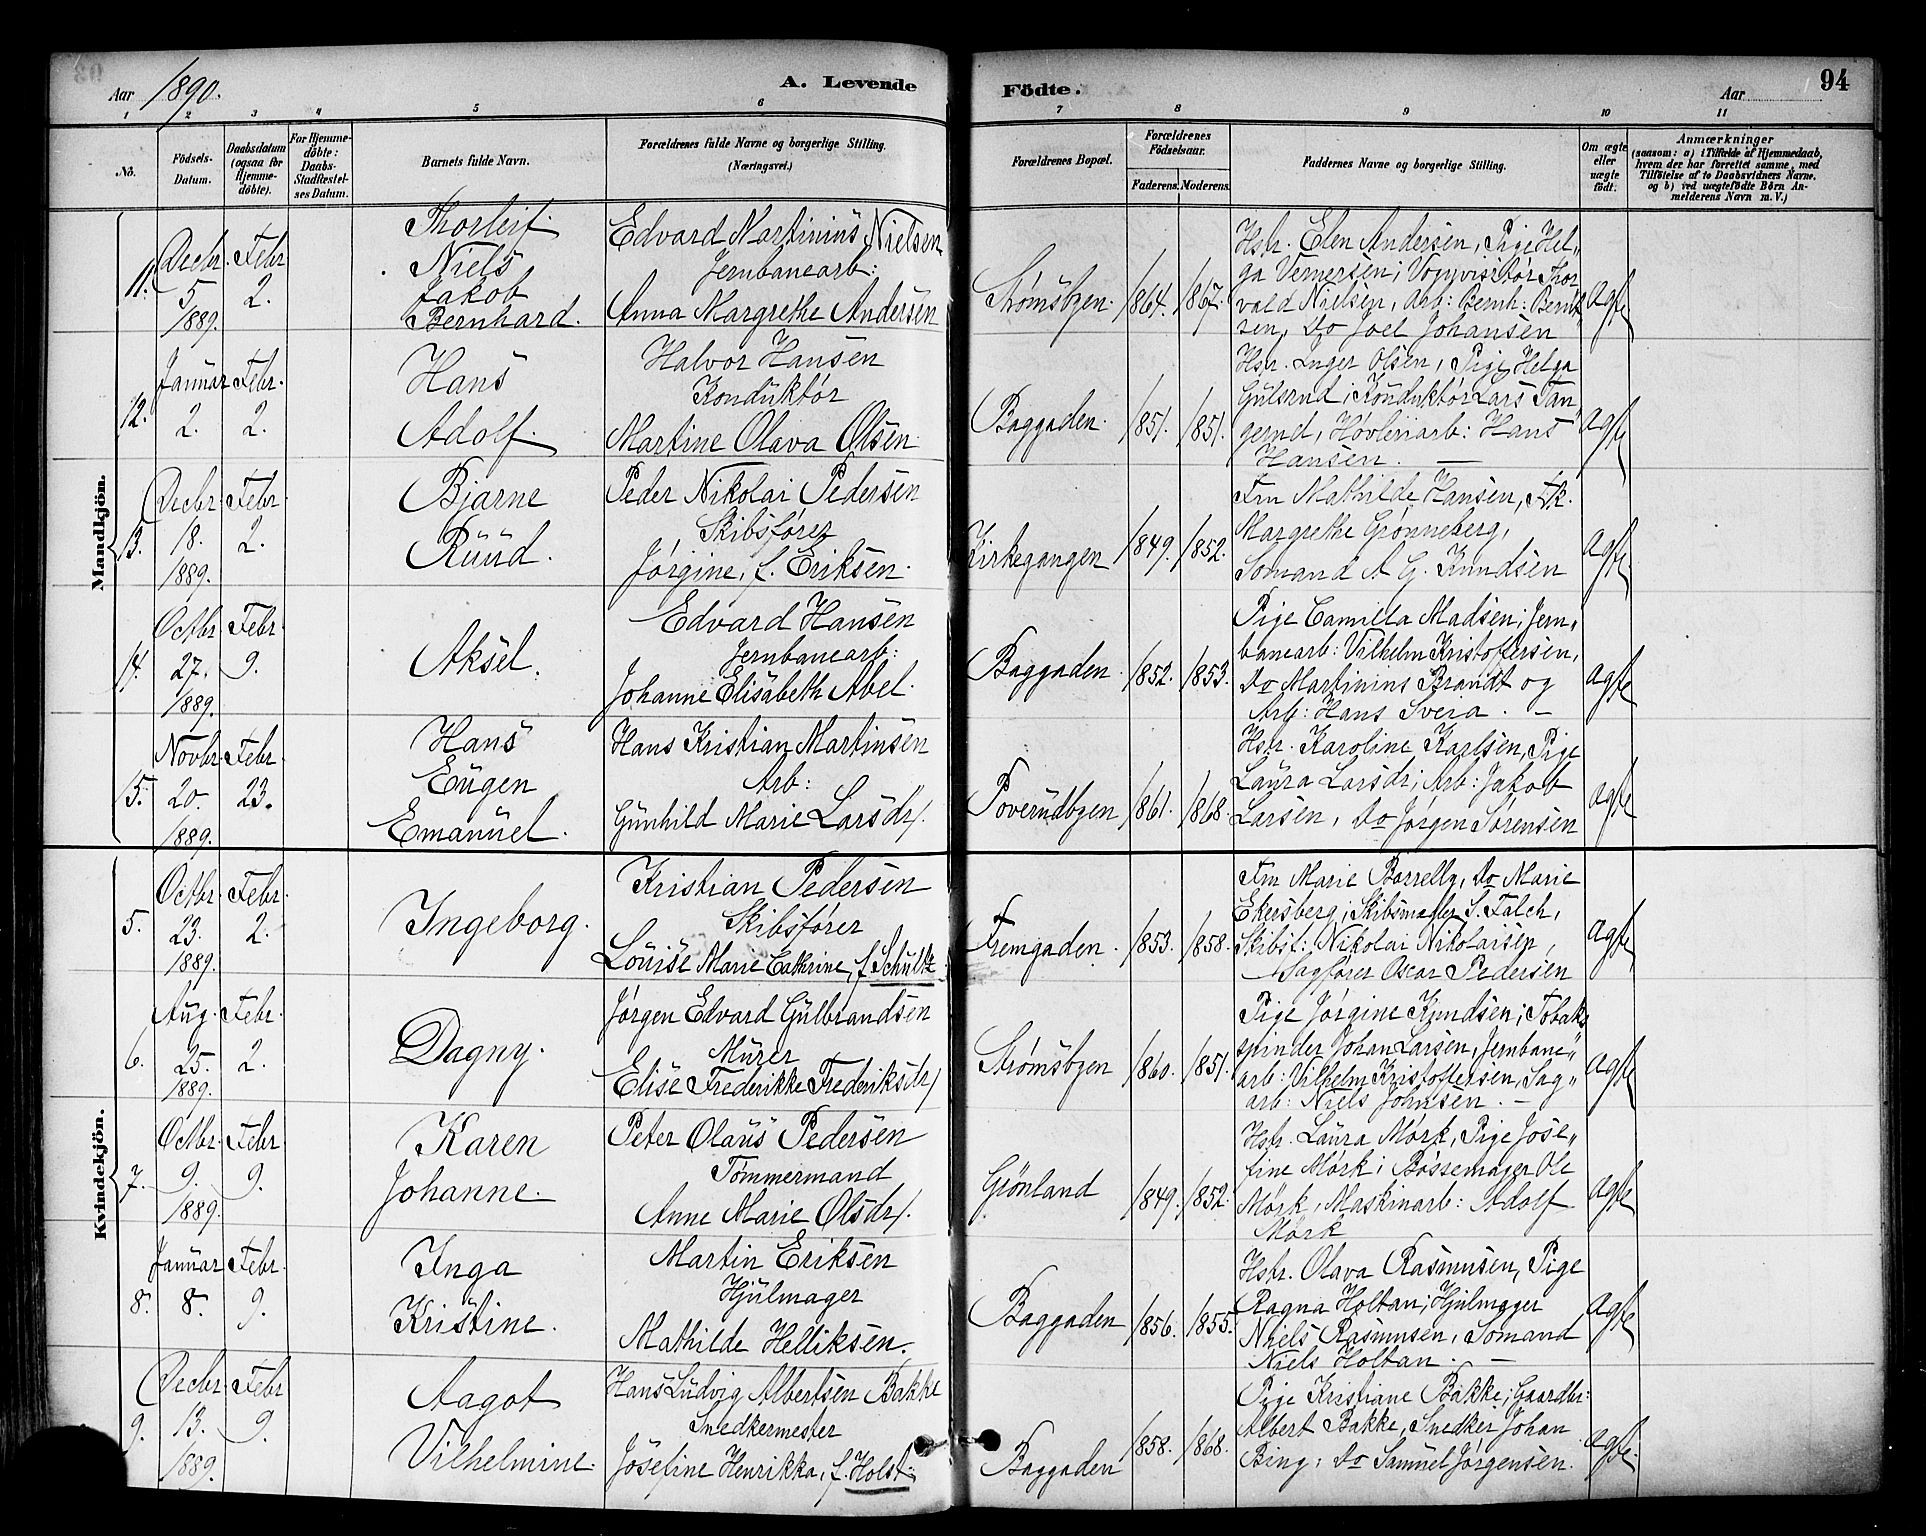 Aar 1890. A. Levende Födte. Aar 94
1 2 3 4 5 6 7 8 9 10 11
No. Födsels-Datum. Daabsdatum (ogsaa for Hjemme-döbte). For Hjemme-döbte: Daabs-Stadfæstel-ses Datum. Barnets fulde Navn. Forældrenes fulde Navne og borgerlige Stilling. (Næringsvei.) Forældrenes Bopæl. Forældrenes Födselsaar. Faderens. Moderens. Faddernes Navne og borgerlige Stilling. Om ægte eller uægte födt. Anmærkninger
(saasom: a) i Tilfælde af Hjemmedaab,
hvem der har forrettet samme, med
Tilföielse af to Daabsvidners Navne,
og b) ved uægtefödte Börn An-
melderens Navn m. V.)
Mandkjön.
11. Decbr. 5 1889. Febr 2.
Thorleif
Niels
Jakob
Bernhard.
Edvard Martinius Nielsen
Jernbanearb:
Anna Margrethe Andersen
Strømsbyen. 1864. 1867.
Hstr. Elen Andersen, Pige Hel„
ga Vernersen; Vognvisitør Thor
vald Nielsen, Arb: Bernh: Bernt„
sen, Do Joel Johansen
ægte
12. Januar 2. Febr. 2.
Hans
Adolf.
Halvor Hansen
Konduktør
Martine Olava Olsen
Baggaden. 1851. 1851.
Hstr. Inger Olsen, Pige Helga
Gulsrud; Konduktør Lars Tan„
gerud, Høvleriarb: Hans
Hansen. —
ægte
13. Decbr 18. 1889. Febr. 2.
Bjarne
Ruud.
Peder Nikolai Pedersen
Skibsfører
Jørgine, f. Eriksen.
Kirkegangen 1849. 1852.
Fru Mathilde Hansen, Frk.
Margrethe Grønneberg,
Sømand A G. Knudsen
ægte.
14. Octbr. 27. 1889. Febr. 9.
Aksel.
Edvard Hansen
Jernbanearb:
Johanne Elisabeth Abel.
Baggaden. 1852. 1853.
Pige Camilla Madsen; Jern„
banearb: Vilhelm Kristoffersen,
Do Martinius Brandt og
Arb: Hans Svera. —
ægte
15. Novbr. 20. 1889. Febr. 23.
Hans
Eugen
Emanuel.
Hans Kristian Martinsen
Arb:
Gunhild Marie Larsdr.
Poverudbyen 1861. 1868.
Hstr. Karoline Karlsen, Pige
Laura Larsdr; Arb: Jakob
Larsen, Do Jørgen Sørensen
ægte
Kvindekjön.
5. Octbr. 23. 1889. Febr. 2.
Ingeborg.
Kristian Pedersen
Skibsfører
Louise Marie Cathrine, f. Schultz.
Fremgaden. 1853. 1858.
Fru Marie Borrelly, Do Marie
Ekersberg; Skibsmægler S. Falch,
Skibsf: Nikolai Nikolaisen,
Sagfører Oscar Pedersen
ægte
6. Aug. 25. 1889. Febr. 2.
Dagny.
Jørgen Edvard Gulbrandsen
Murer
Elise Frederikke Frederiksdr.
Strømsbyen 1860. 1851.
Pige Jørgine Knudsen; Tobaks
spinder Johan Larsen, Jernbane„
arb: Vilhelm Kristoffersen, Sag„
arb: Niels Johnsen. —
ægte
7. Octbr. 9. 1889. Febr. 9.
Karen
Johanne.
Peter Olaus Pedersen
Tømmermand
Anne Marie Olsdr.
Grönland 1849. 1852.
Hstr. Laura Mørk, Pige Jose„
fine Mørk; Bøssemager Ole
Mørk, Maskinarb: Adolf
Mørk
ægte
8. Januar 8. Febr. 9.
Inga
Kristine.
Martin Eriksen
Hjulmager
Mathilde Helliksen.
Baggaden 1856. 1855.
Hstr. Olava Rasmusen, Pige
Ragna Holtan; Hjulmager
Niels Rasmusen, Sømand
Niels Holtan. —
ægte
9. Decbr 13. 1889. Febr 9.
Aagot
Vilhelmine.
Hans Ludvig Albertsen Bakke
Snedkermester
Josefine Henrikka, f. Holst.
Baggaden 1858. 1868.
Pige Kristiane Bakke; Gaardbr:
Albert Bakke, Snedker Johan
Bing, Do Samuel Jørgensen.
ægte.